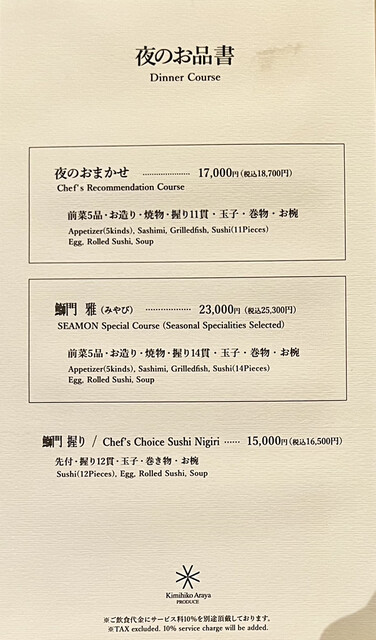 夜のお品書
Dinner Course
夜のおまかせ ………………… 17,000円(税込18,700円)
Chef's Recommendation Course
前菜5品・お造り・焼物・握り11貫・玉子・巻物・お椀
Appetizer(5kinds), Sashimi, Grilledfish, Sushi(11Pieces)
Egg, Rolled Sushi, Soup
鰤門 雅(みやび) ………………… 23,000円(税込25,300円)
SEAMON Special Course (Seasonal Specialities Selected)
前菜5品・お造り・焼物・握り14貫・玉子・巻物・お椀
Appetizer(5kinds), Sashimi, Grilledfish, Sushi(14Pieces)
Egg, Rolled Sushi, Soup
鰤門 握り / Chef's Choice Sushi Nigiri …… 15,000円(税込16,500円)
先付・握り12貫・玉子・巻き物・お椀
Sushi(12Pieces), Egg, Rolled Sushi, Soup
Kimihiko Araya
PRODUCE
※ご飲食代金にサービス料10%を別途頂戴しております。
※TAX excluded. 10% service charge will be added.